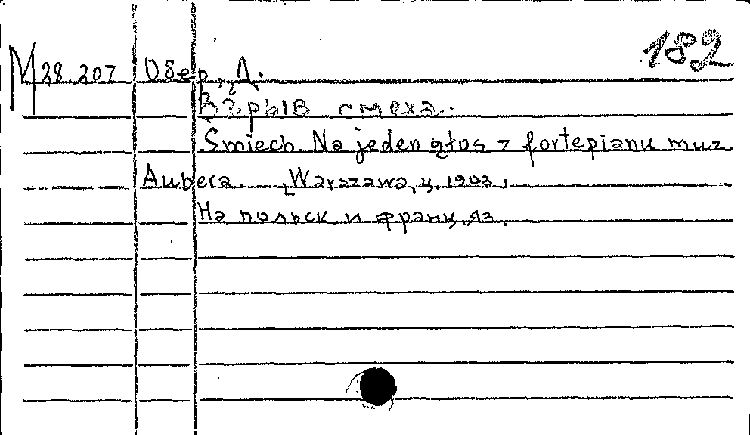 182
М 28.207 Обер, Д.
Взрыв смеха.
Śmiech. Na jeden głos z fortepianu muz.
Aubera. [Warszawa, ц. 1903]
На польск. и франц. яз.